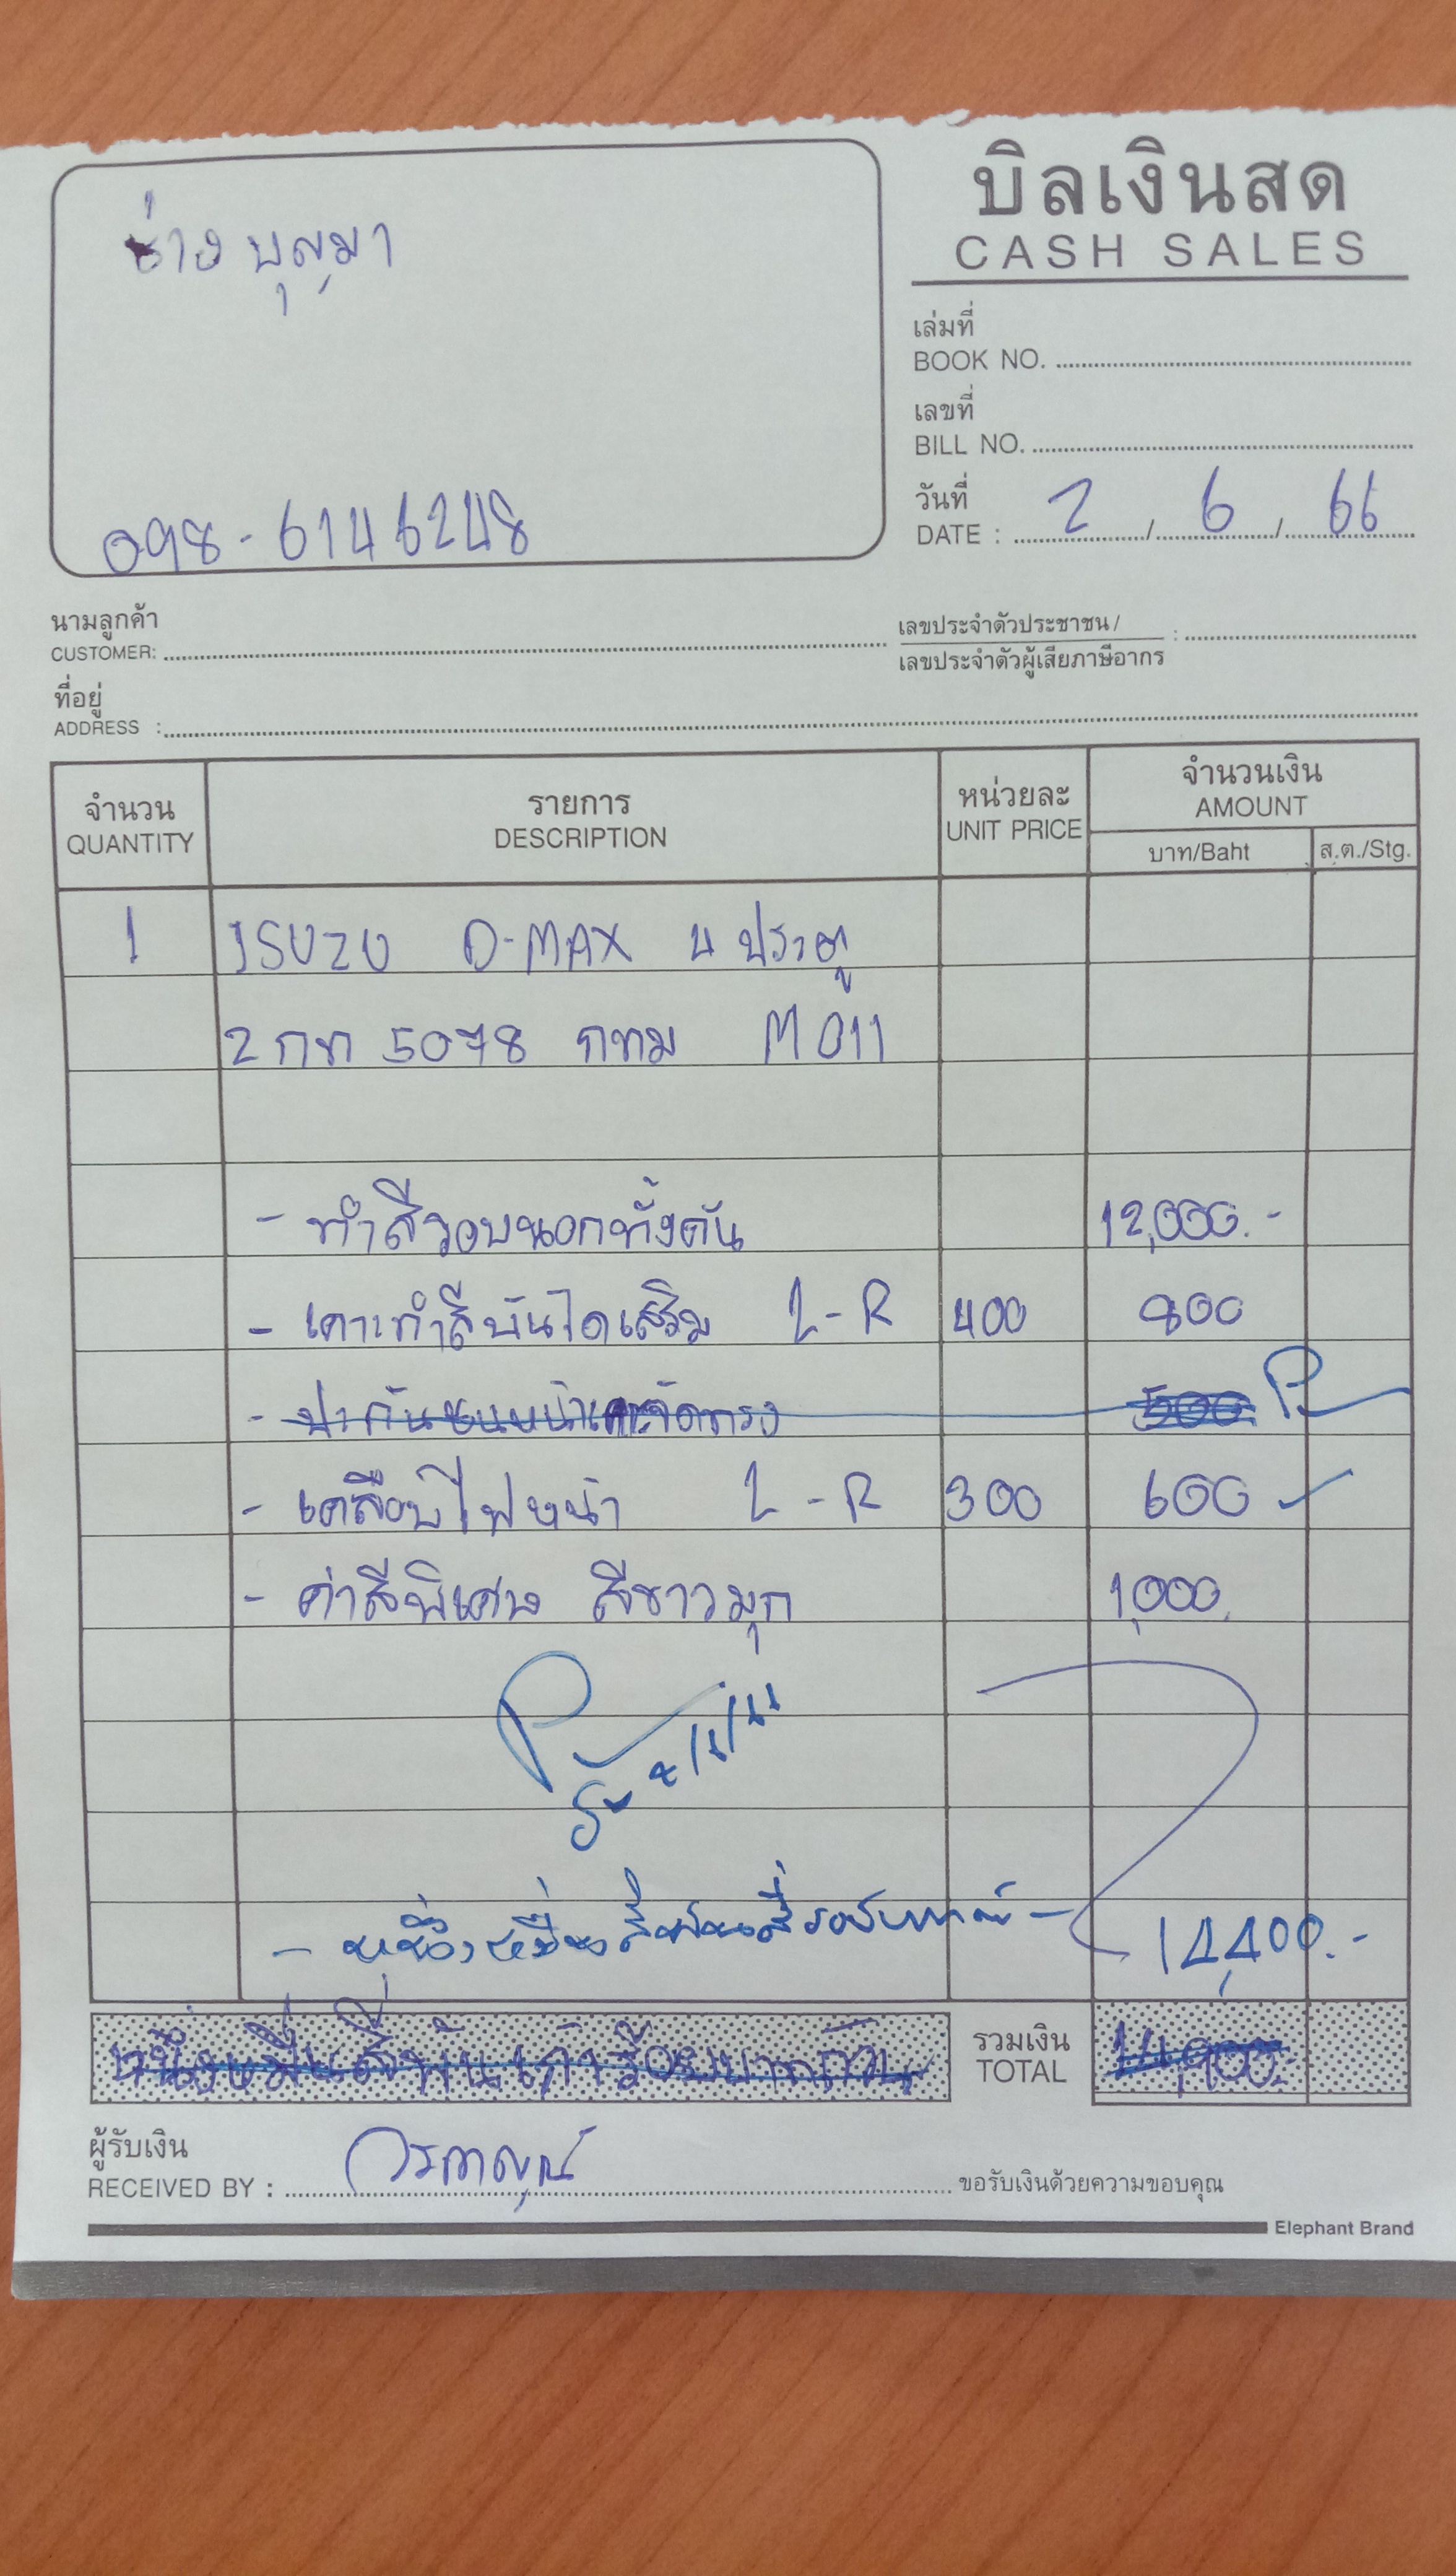 บิลเงินสด
CASH SALES
ช่าง บุญมา
098-6146248
เล่มที่
BOOK NO.
เลขที่
BILL NO.
วันที่
DATE : 2 / 6 / 66
นามลูกค้า
CUSTOMER:
เลขประจำตัวประชาชน /
เลขประจำตัวผู้เสียภาษีอากร :
ที่อยู่
ADDRESS :
จำนวน รายการ หน่วยละ จำนวนเงิน
QUANTITY DESCRIPTION UNIT PRICE AMOUNT
บาท/Baht ส.ต./Stg.
1 ISUZU D-MAX 4 ประตู
2 กท 5078 กทม M011
- ทำสีรอบนอกทั้งคัน 12,000.-
- เคาะทำสีบันไดเสริม L-R 400 800
- กันชนหน้า 500
- เคลือบไฟหน้า L-R 300 600
- ค่าสีพิเศษ สีขาวมุก 1,000.
- หนึ่งหมื่นสี่พันสี่ร้อยบาท - 14,400.-
หนึ่งหมื่นสี่พันเก้าร้อยบาทถ้วน รวมเงิน 14,900.-
TOTAL
ผู้รับเงิน
RECEIVED BY : ขอรับเงินด้วยความขอบคุณ
Elephant Brand